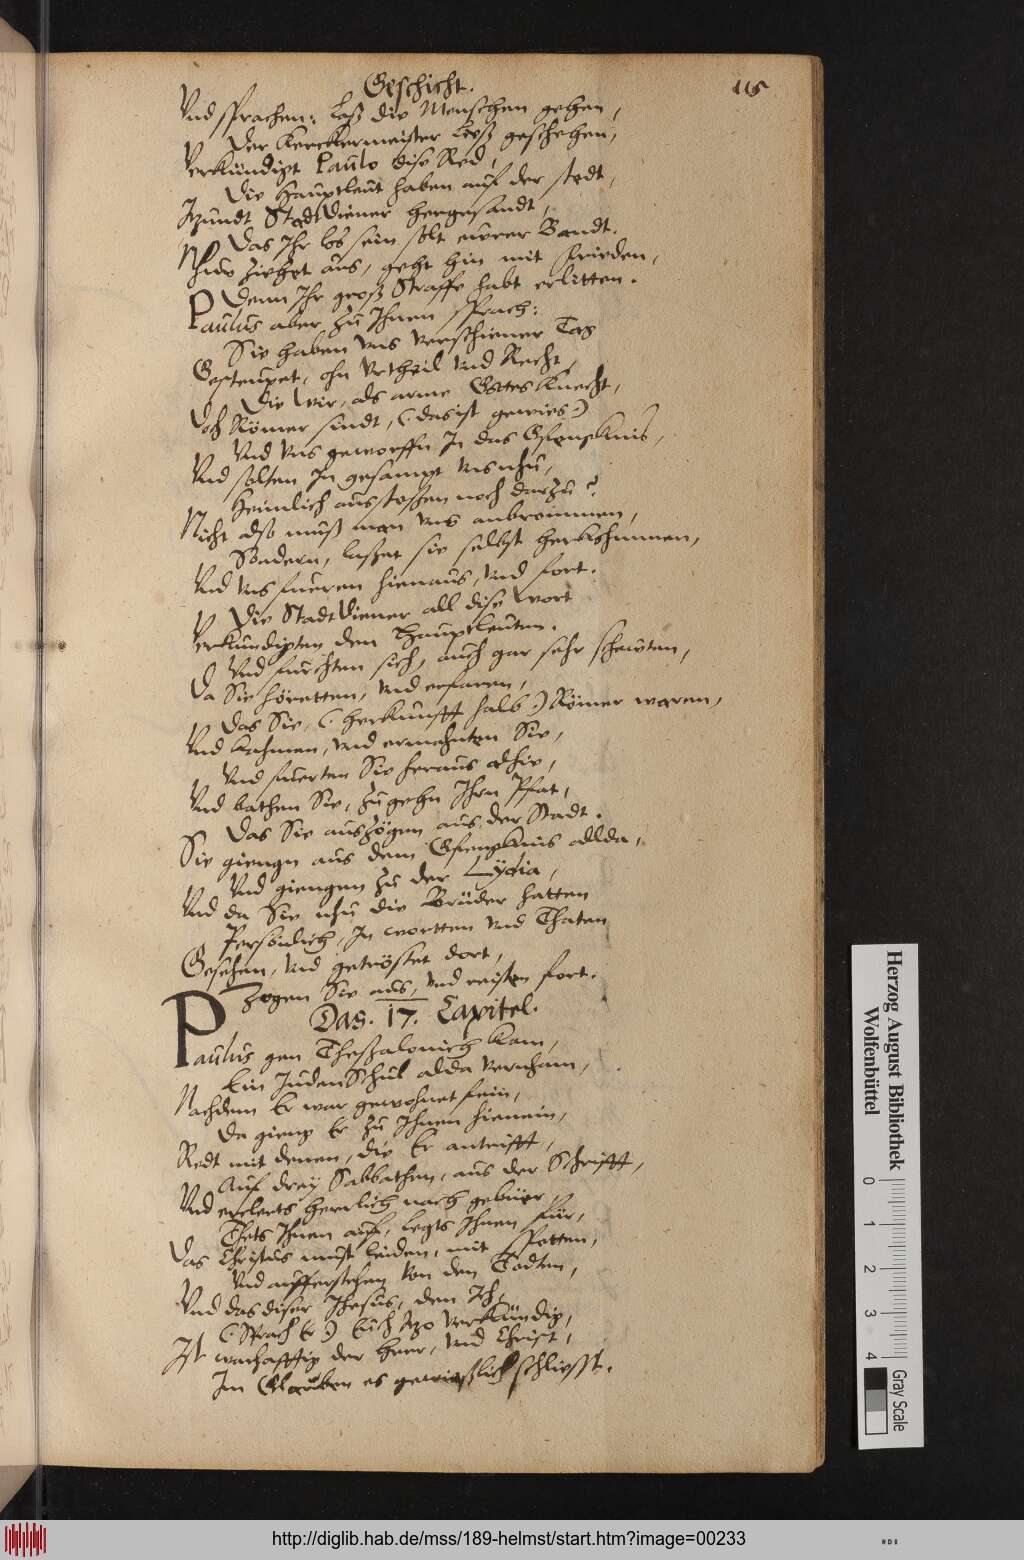 Geschicht.
115
Vnd sprachen: Laß die Menschen gehen,
Der Kerckermeister ließ geschehen,
Verkündigt Paulo dise Red,
Die Hauptleut haben auf der stedt,
Itzundt StadtDiener hergesandt,
Das Ihr los sein solt eurer Bandt.
Nhue ziehet aus, geht hin mit frieden,
Denn Ihr groß Straffe habt erlitten.
Paulus aber zu Ihnen sprach:
Sie haben vns verschiener Tag
Gesteupet, ohn Vrtheil vnd Recht,
Die Wir, als arme Gottes Knecht,
doch Römer sindt, (: das ist gewies :)
Vnd vns geworffn In das
Vnd solten In gesampt vns nhu,
Heimlich ausstoßen noch darzu?
Nicht also muß man vns anbrommen,
Sondern, laßet sie selbst herkohmmen,
Vnd vns fueren hienaus, vnd fort.
Die StadtDiener all dise Wort
Verkundigten den Hauptleuten.
Vnd furchten sich, auch gar sehr scheuten,
Da Sie höretten, vnd erfaren,
Das Sie, (: herkunfft halb :) Römer waren,
Vnd kahmen, vnd ermahnten Sie,
Vnd fuerten Sie heraus alhie,
Vnd bathen Sie, zu gehn Ihrn Pfat,
Das Sie auszögen aus der Stadt.
Sie giengn aus dem Gfengknis allda,
Vnd giengen zu der Lydia,
Vnd da Sie nhu die Brüder hatten
Persönlich, In wortten vnd Thaten
Gesehen, vnd getröstet dort,
Zogen Sie aus, vnd reisten fort.
Das. 17. Capitel.
Paulus gen Theßalonich kam,
Ein JudenSchul alda vernham,
Nachdem Er war gewohnet fein,
Da gieng Er zu Ihnen hienein,
Redt mit denen, die Er antrifft,
Auf drey Sabbathen, aus der Schrifft,
Vnd erclerts herrlich nach gebüer
Thets Ihnen auf, legts Ihnen für,
Das Christus must leiden, mit spotten,
Vnd aufferstehen von den Todten,
Vnd das diser Jhesus, den Ich,
(: Sprach Er :) Euch Itzo verkündig,
Ist warhafftig der Herr, vnd Christ,
Im Glauben es gewießlich schliesst.
Herzog August Bibliothek
Wolfenbüttel
0 1 2 3 4
Gray Scale
http://diglib.hab.de/mss/189-helmst/start.htm?image=00233